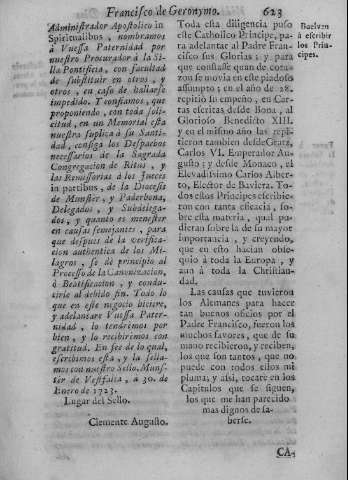 Francisco de Geronymo. 623
Administrador Apostolico in
Spiritualibus, nombramos
à Vuessa Paternidad por
nuestro Procurador à la Si-
lla Pontificia, con facultad
de substituir en otros, y
otros, en caso de hallarse
impedido. Y confiamos, que
proponiendo, con toda soli-
citud, en un Memorial esta
nuestra suplica à su Santi-
dad, consiga los Despachos
necessarios de la Sagrada
Congregacion de Ritus, y
las Remissorias à los Jueces
in partibus, de la Diocesis
de Munster, y Paderbona,
Delegados, y Subdelega-
dos, y quanto es menester
en causas semejantes, para
que despues de la verifica-
cion authentica de los Mi-
lagros, se dè principio al
Processo de la Canonizacion,
ò Beatificacion, y condu-
cirle al debido fin. Todo lo
que en este negocio hiciere,
y adelantare Vuessa Pater-
nidad, lo tendrèmos por
bien, y lo recibirèmos con
gratitud. En fee de lo qual,
escribimos esta, y la sella-
mos con nuestro Sello. Muns-
ter de Vestfalia, a 30. de
Enero de 1725.
Lugar del Sello.
Clemente Augusto.
Toda esta diligencia puso
este Catholico Principe, pa-
ra adelantar al Padre Fran-
cisco sus Glorias; y para
que constasse quan de cora-
zon se movia en este piadoso
assumpto; en el año de 28.
repitiò su empeño, en Car-
tas escritas desde Bona, al
Glorioso Benedicto XIII.
y en el mismo año las repi-
tieron tambien desde Gratz,
Carlos VI. Emperador Au-
gusto; y desde Monaco, el
Elevadissimo Carlos Alber-
to, Elector de Baviera. To-
dos estos Principes escribie-
ron con tanta eficacia, so-
bre esta materia, qual pu-
dieran sobre la de su mayor
importancia, y creyendo,
que en esto hacian obse-
quio à toda la Europa, y
aun à toda la Christian-
dad.
Las causas que tuvieron
los Alemanes para hacer
tan buenos oficios por el
Padre Francisco, fueron los
muchos favores, que de su
mano recibieron, y reciben,
los que son tantos, que no
puede con todos ellos mi
pluma; y assi, tocarè en los
Capitulos que se siguen,
los que me han parecido
mas dignos de sa-
berse.
Buelven
à escribir
los Prin-
cipes.
CA-